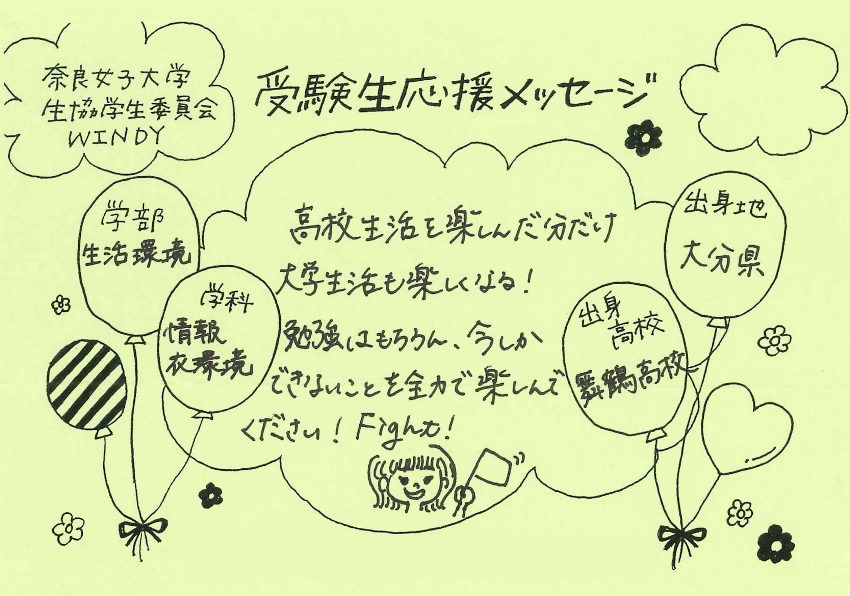 奈良女子大学
生協学生委員会
WINDY
受験生応援メッセージ
学部
生活環境
学科
情報
衣環境
高校生活を楽しんだ分だけ
大学生活も楽しくなる!
勉強はもちろん、今しか
できないことを全力で楽しんで
ください! Fight!
出身地
大分県
出身
高校
舞鶴高校